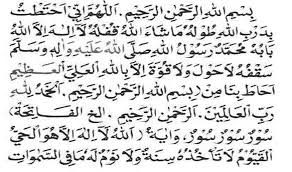 بِسْمِ اللهِ الرَّحْمٰنِ الرَّحِيْمِ. اَللّٰهُمَّ اِنِّى احْتَطْتُ
بِدَرْبِ اللهِ طُوْلُهُ مَاشَاءَ اللهُ قُفْلُهُ لَا اِلٰهَ اِلَّا اللهُ
بَابُهُ مُحَمَّدٌ رَسُوْلُ اللهِ صَلَّى اللهُ عَلَيْهِ وَاٰلِهِ وَسَلَّمَ
سَقْفُهُ لَاحَوْلَ وَلَا قُوَّةَ اِلَّا بِاللهِ الْعَلِيِّ الْعَظِيْمِ
اَحَاطَ بِنَا مِنْ بِسْمِ اللهِ الرَّحْمٰنِ الرَّحِيْمِ. اَلْحَمْدُ لِلّٰهِ
رَبِّ الْعَالَمِيْنَ. اَلرَّحْمٰنِ الرَّحِيْمِ. الخ الفاتحة)
سُوْرٌ سُوْرٌ سُوْرٌ، وَاٰيَةُ (اَللهُ لَا اِلٰهَ اِلَّا هُوَ الْحَيُّ
الْقَيُّوْمُ لَا تَأْخُذُهُ سِنَةٌ وَلَا نَوْمٌ لَهُ مَا فِى السَّمٰوَاتِ